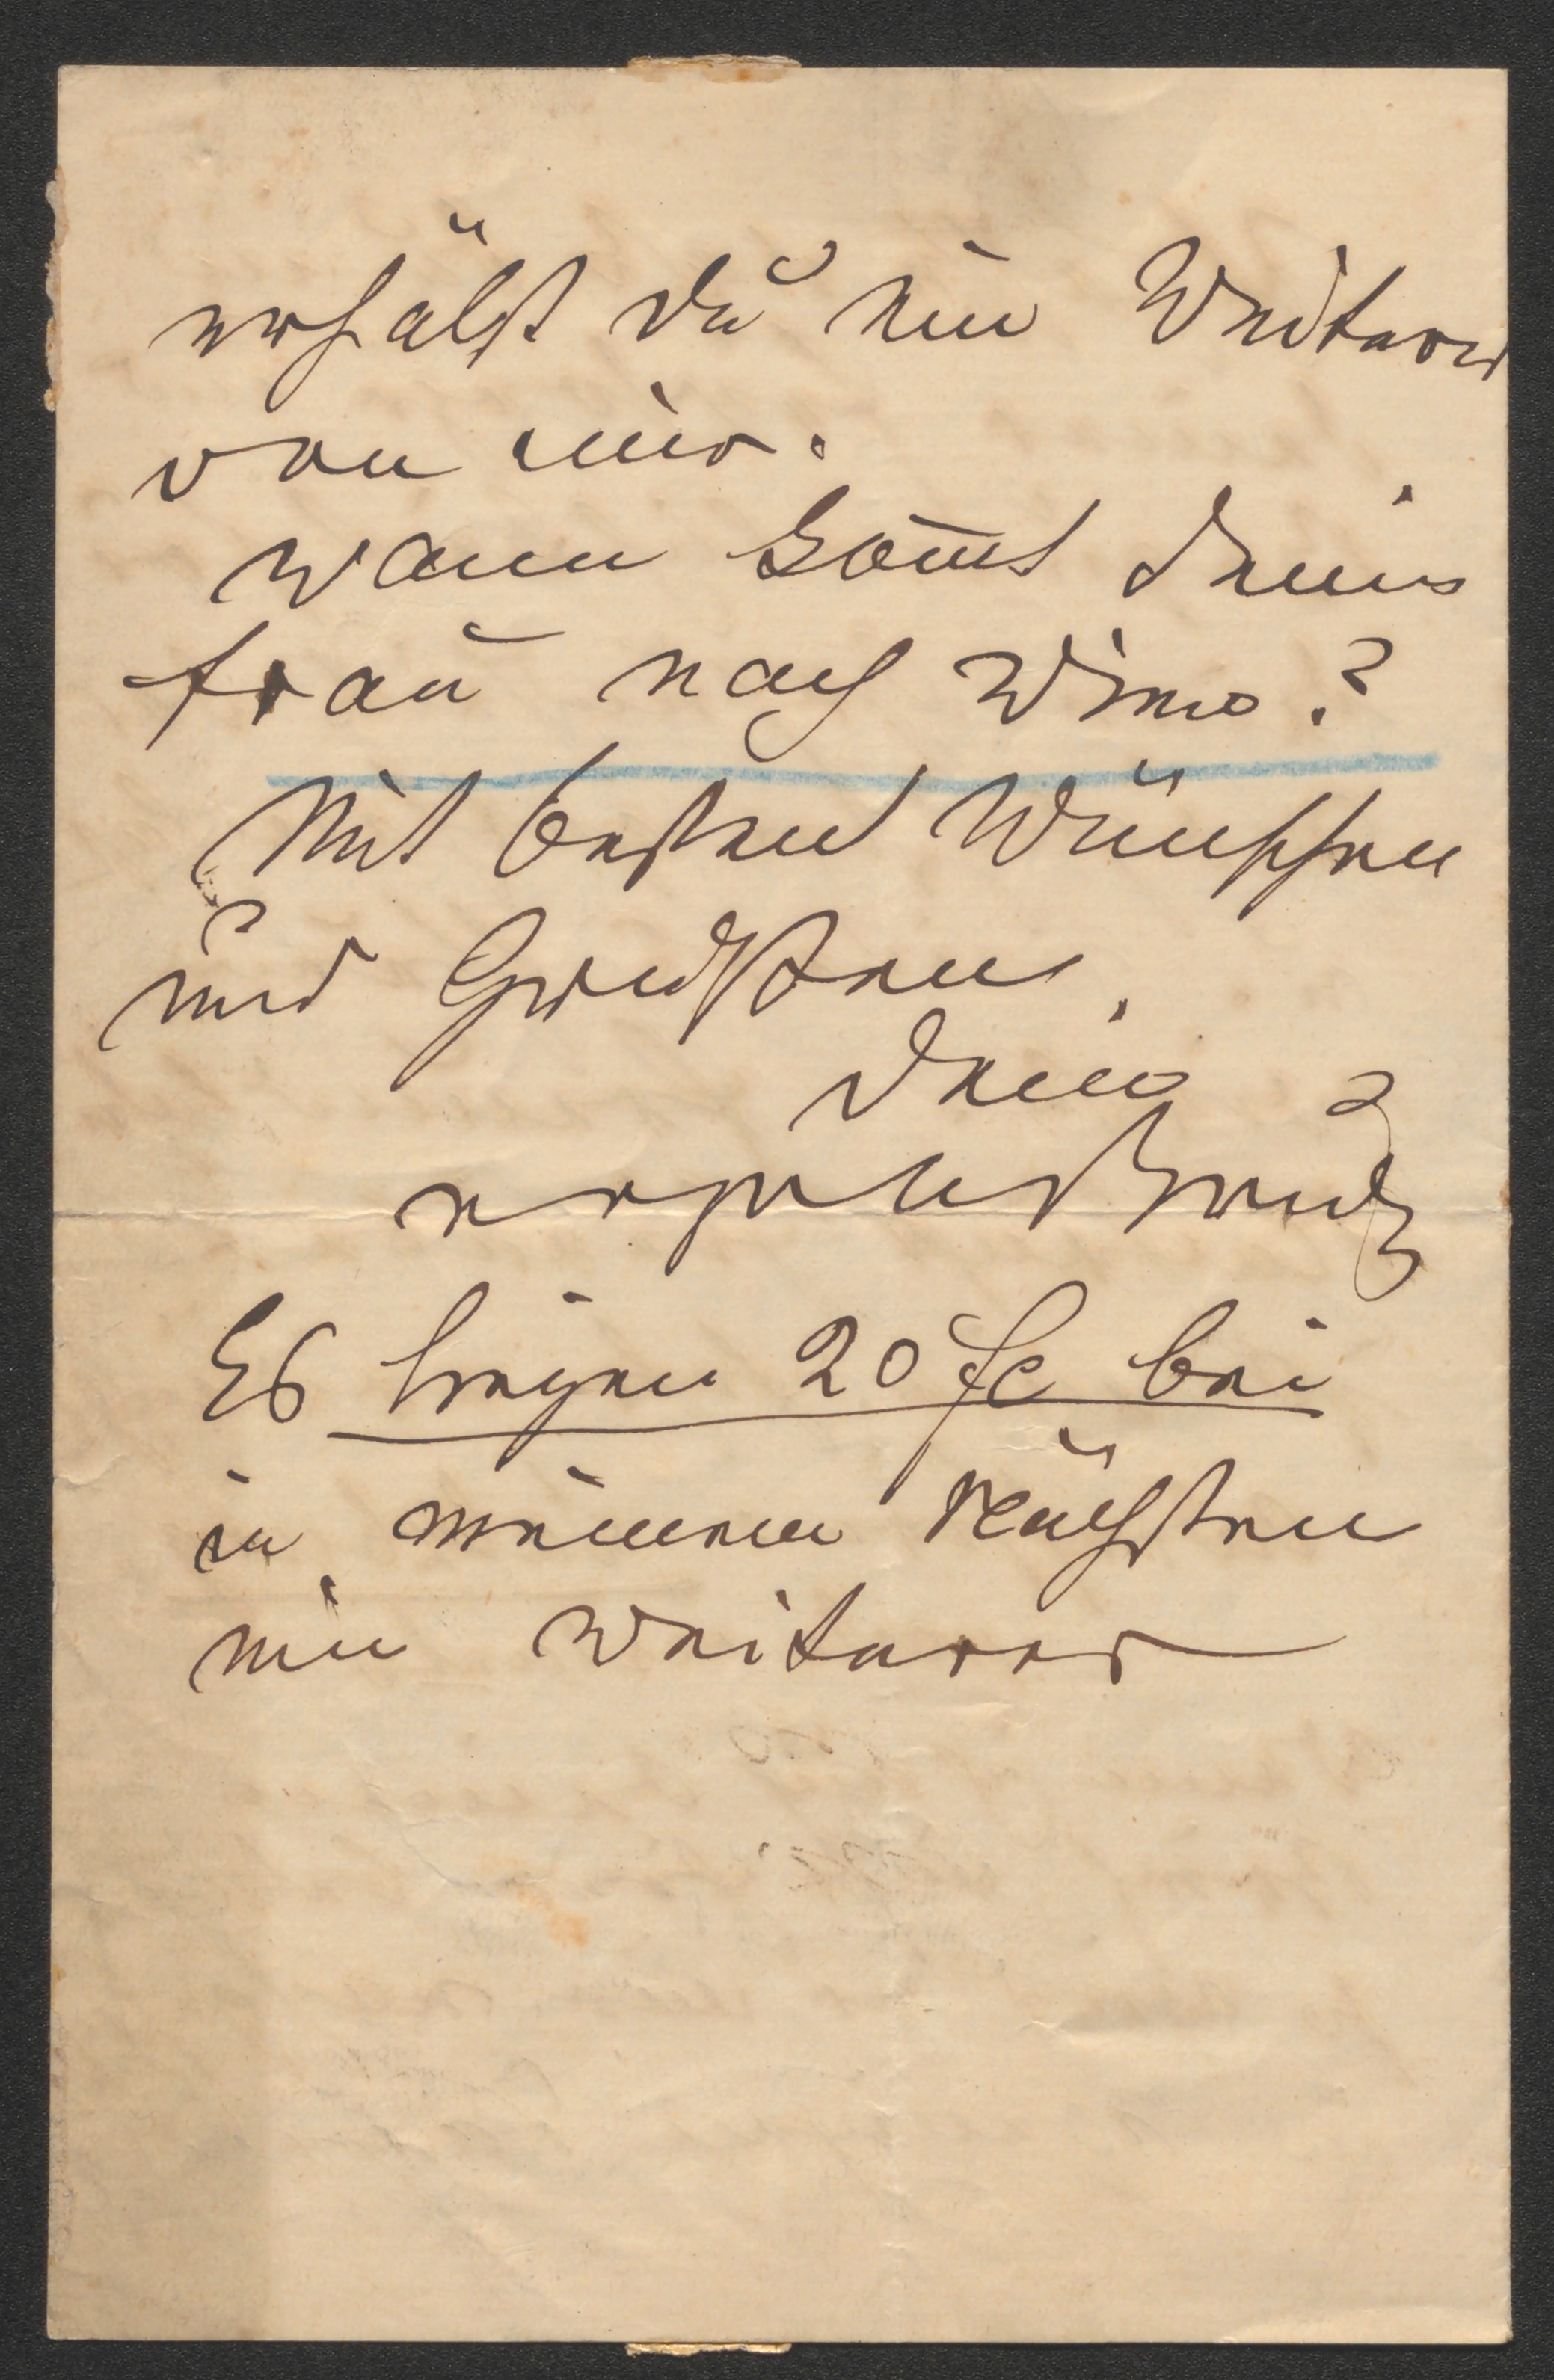 erhälst Du ein Weiteres
von mir.
Wann kom̄t Deine
Frau nach Wien?
Mit besten Wünschen
und Grüßen
Dein
ergebenster
Es liegen 20 fl bei
in meinem Nächsten
ein Weiteres